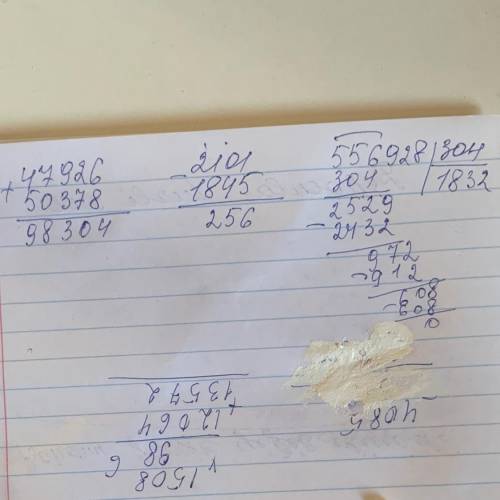 +47926
50378
98304
-2101
1845
256
556928|304
304 |1832
2529
-2432
972
-912
608
-608
0
1508
98
12064
13572
4085